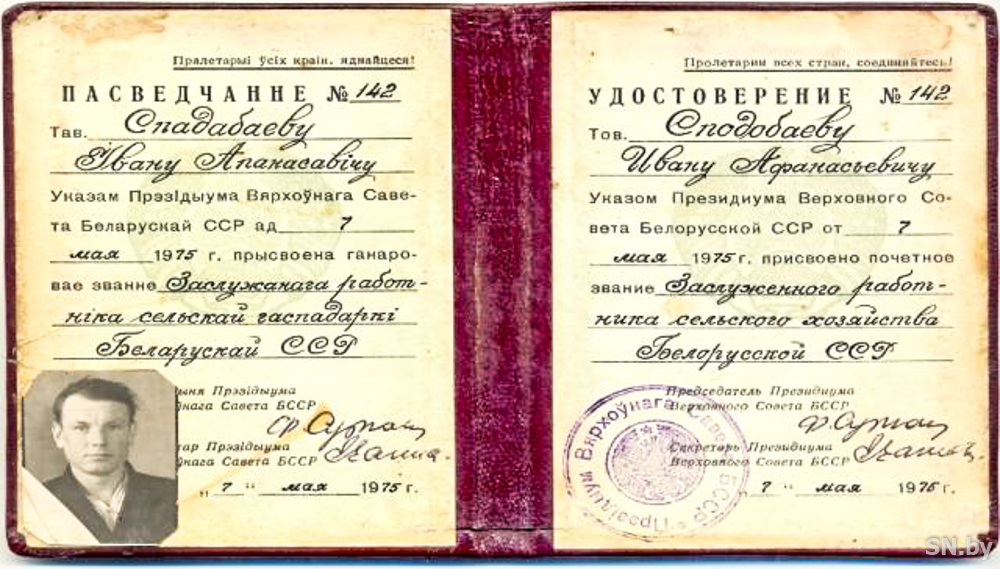 Пралетарыі ўсіх краін, яднайцеся!
ПАСВЕДЧАННЕ № 142
Тав. Спадабаеву
Івану Апанасавічу
Указам Прэзідыума Вярхоўнага Саве-
та Беларускай ССР ад 7
мая 1975 г. прысвоена ганаро-
вае званне Заслужанага работ-
ніка сельскай гаспадаркі
Беларускай ССР
ыня Прэзідыума
ўнага Савета БССР
тар Прэзідыума
ўнага Савета БССР
„7" мая 1975 г.
Пролетарии всех стран, соединяйтесь!
УДОСТОВЕРЕНИЕ № 142
Тов. Сподобаеву
Ивану Афанасьевичу
Указом Президиума Верховного Со-
вета Белорусской ССР от 7
мая 1975 г. присвоено почетное
звание Заслуженного работ-
ника сельского хозяйства
Белорусской ССР
Председатель Президиума
Верховного Совета БССР
Секретарь Президиума
Верховного Совета БССР
„7" мая 1975 г.
Прэзідыум Вярхоўнага Савета БССР
SN.by